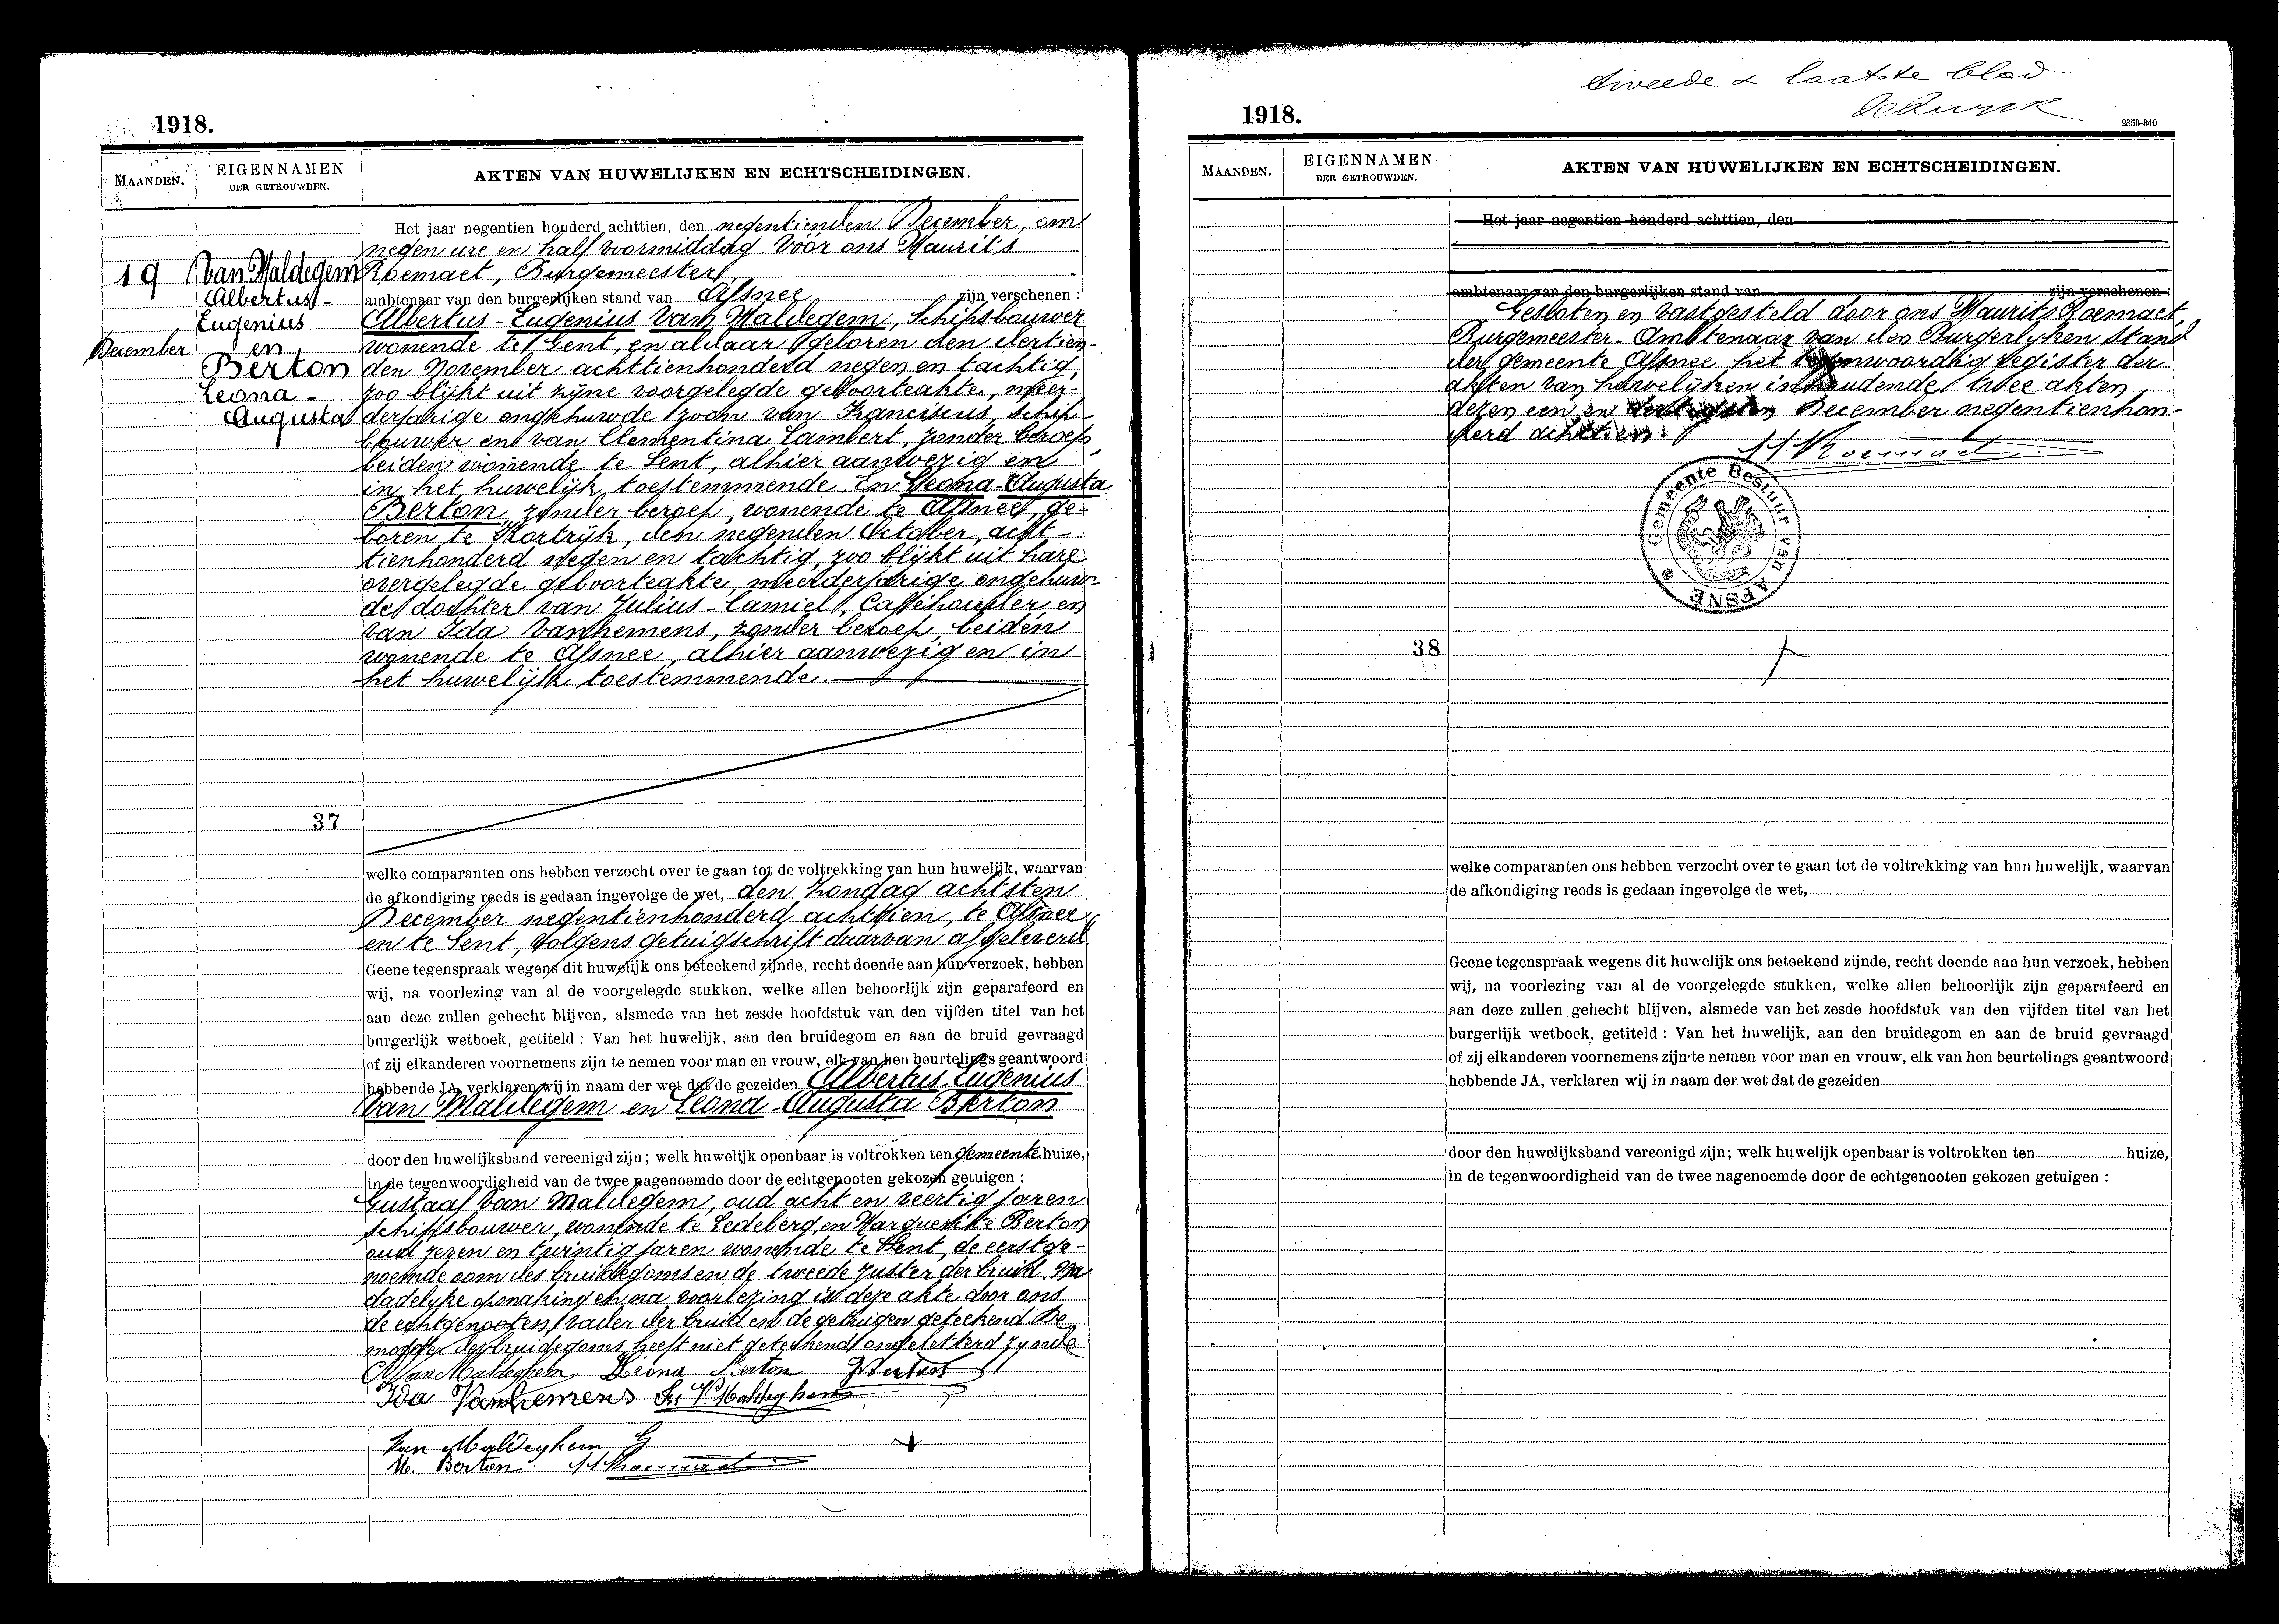 1918.
MAANDEN.
EIGENNAMEN
DER GETROUWDEN.
AKTEN VAN HUWELIJKEN EN ECHTSCHEIDINGEN.
19
December
Van Maldegem
Albertus-
Eugenius
en
Berton
Leona-
Augusta
Het jaar negentien honderd achttien, den negentienden December, om
negen ure en half voormiddag. Vóór ons Maurits
Roemaet, Burgemeester,
ambtenaar van den burgerlijken stand van Afsnee zijn verschenen :
Albertus-Eugenius Van Maldegem, Schipsbouwer
wonende te Gent, en aldaar geboren den dertien-
den November achttienhonderd negen en tachtig,
zoo blijkt uit zijne voorgelegde geboorteakte, meer-
derjarige ongehuwde zoon van Franciscus, schip-
bouwer en van Clementina Lambert, zonder beroep,
beiden wonende te Gent, alhier aanwezig en
in het huwelijk toestemmende. En Leona-Augusta
Berton, zonder beroep, wonende te Afsnee, ge-
boren te Kortrijk, den negenden October, acht-
tienhonderd negen en tachtig, zoo blijkt uit hare
overgelegde geboorteakte, meerderjarige ongehuw-
de dochter van Julius-Camiel, Caféhouder en
van Ida Vanhemens, zonder beroep, beiden
wonende te Afsnee, alhier aanwezig en in
het huwelijk toestemmende.
37
welke comparanten ons hebben verzocht over te gaan tot de voltrekking van hun huwelijk, waarvan
de afkondiging reeds is gedaan ingevolge de wet, den Zondag achtsten
December negentienhonderd achttien, te Afsnee
en te Gent, volgens getuigschrift daarvan afgeleverd
Geene tegenspraak wegens dit huwelijk ons beteekend zijnde, recht doende aan hun verzoek, hebben
wij, na voorlezing van al de voorgelegde stukken, welke allen behoorlijk zijn geparafeerd en
aan deze zullen gehecht blijven, alsmede van het zesde hoofdstuk van den vijfden titel van het
burgerlijk wetboek, getiteld : Van het huwelijk, aan den bruidegom en aan de bruid gevraagd
of zij elkanderen voornemens zijn te nemen voor man en vrouw, elk van hen beurtelings geantwoord
hebbende JA, verklaren wij in naam der wet dat de gezeiden Albertus Eugenius
Van Maldegem en Leona-Augusta Berton
door den huwelijksband vereenigd zijn; welk huwelijk openbaar is voltrokken ten gemeente huize,
in de tegenwoordigheid van de twee nagenoemde door de echtgenooten gekozen getuigen :
Gustaaf Van Maldegem, oud acht en veertig jaren
schipsbouwer, wonende te Ledeberg, en Marguerite Berton
oud zeven en twintig jaren wonende te Gent, de eerstge-
noemde oom des bruidegoms en de tweede zuster der bruid. Na
dadelijke opmaking en na voorlezing is deze akte door ons
de echtgenooten, vader der bruid en de getuigen geteekend. De
moeder des bruidegoms heeft niet geteekend ongeletterd zijnde
A Van Maldeghem Léona Berton J Berton
Ida Vanhemens Fr. V. Maldeghem
Van Maldeghem G
M. Berton M Roemaet
tweede & laatste blad
1918.
2856-340
MAANDEN.
EIGENNAMEN
DER GETROUWDEN.
AKTEN VAN HUWELIJKEN EN ECHTSCHEIDINGEN.
Het jaar negentien honderd achttien, den
ambtenaar van den burgerlijken stand van zijn verschenen :
Gesloten en vastgesteld door ons Maurits Roemaet,
Burgemeester. Ambtenaar van den Burgerlyken Stand
der gemeente Afsnee het tegenwoordig register der
akten van huwelijken inhoudende twee akten
dezen een en dertigsten December negentienhon-
derd achttien.
M Roemaet
Gemeente Bestuur van AFSNE
38
welke comparanten ons hebben verzocht over te gaan tot de voltrekking van hun huwelijk, waarvan
de afkondiging reeds is gedaan ingevolge de wet,
Geene tegenspraak wegens dit huwelijk ons beteekend zijnde, recht doende aan hun verzoek, hebben
wij, na voorlezing van al de voorgelegde stukken, welke allen behoorlijk zijn geparafeerd en
aan deze zullen gehecht blijven, alsmede van het zesde hoofdstuk van den vijfden titel van het
burgerlijk wetboek, getiteld : Van het huwelijk, aan den bruidegom en aan de bruid gevraagd
of zij elkanderen voornemens zijn te nemen voor man en vrouw, elk van hen beurtelings geantwoord
hebbende JA, verklaren wij in naam der wet dat de gezeiden
door den huwelijksband vereenigd zijn; welk huwelijk openbaar is voltrokken ten huize,
in de tegenwoordigheid van de twee nagenoemde door de echtgenooten gekozen getuigen :